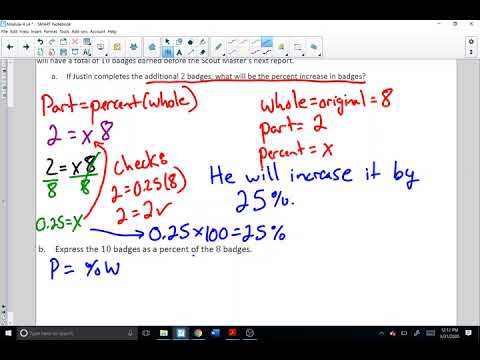 Module 4 L4* - SMART Notebook
will have a total of 10 badges earned before the Scout Master's next report.
a. If Justin completes the additional 2 badges, what will be the percent increase in badges?
Part=percent(whole)
2 = x 8
2 = x8
8 8
0.25=x
Check:
2=0.25(8)
2=2✓
whole=original=8
part= 2
percent=x
He will increase it by
25%.
0.25×100=25%
b. Express the 10 badges as a percent of the 8 badges.
P= %W
Type here to search
12:12 PM
3/31/2020